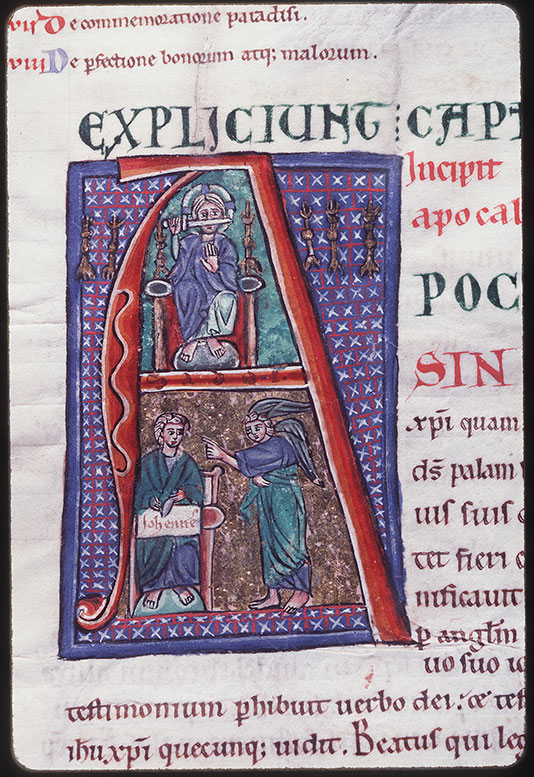 vii De commemoratione paradisi.
viii De pfectione bonorum atq; malorum.
EXPLICIUNT : CAPI
Incipit
apocal
A
POC
SIN
xpi quam
Johannes
ds palam
uis suis
tet fieri
nificauit
p anglm
uo suo io
testimonium phibuit uerbo dei. & tes
ihu xpi quecunq; uidit. Beatus qui leg